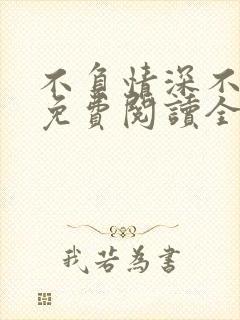 不負情深不
免費閱讀全
我若為書